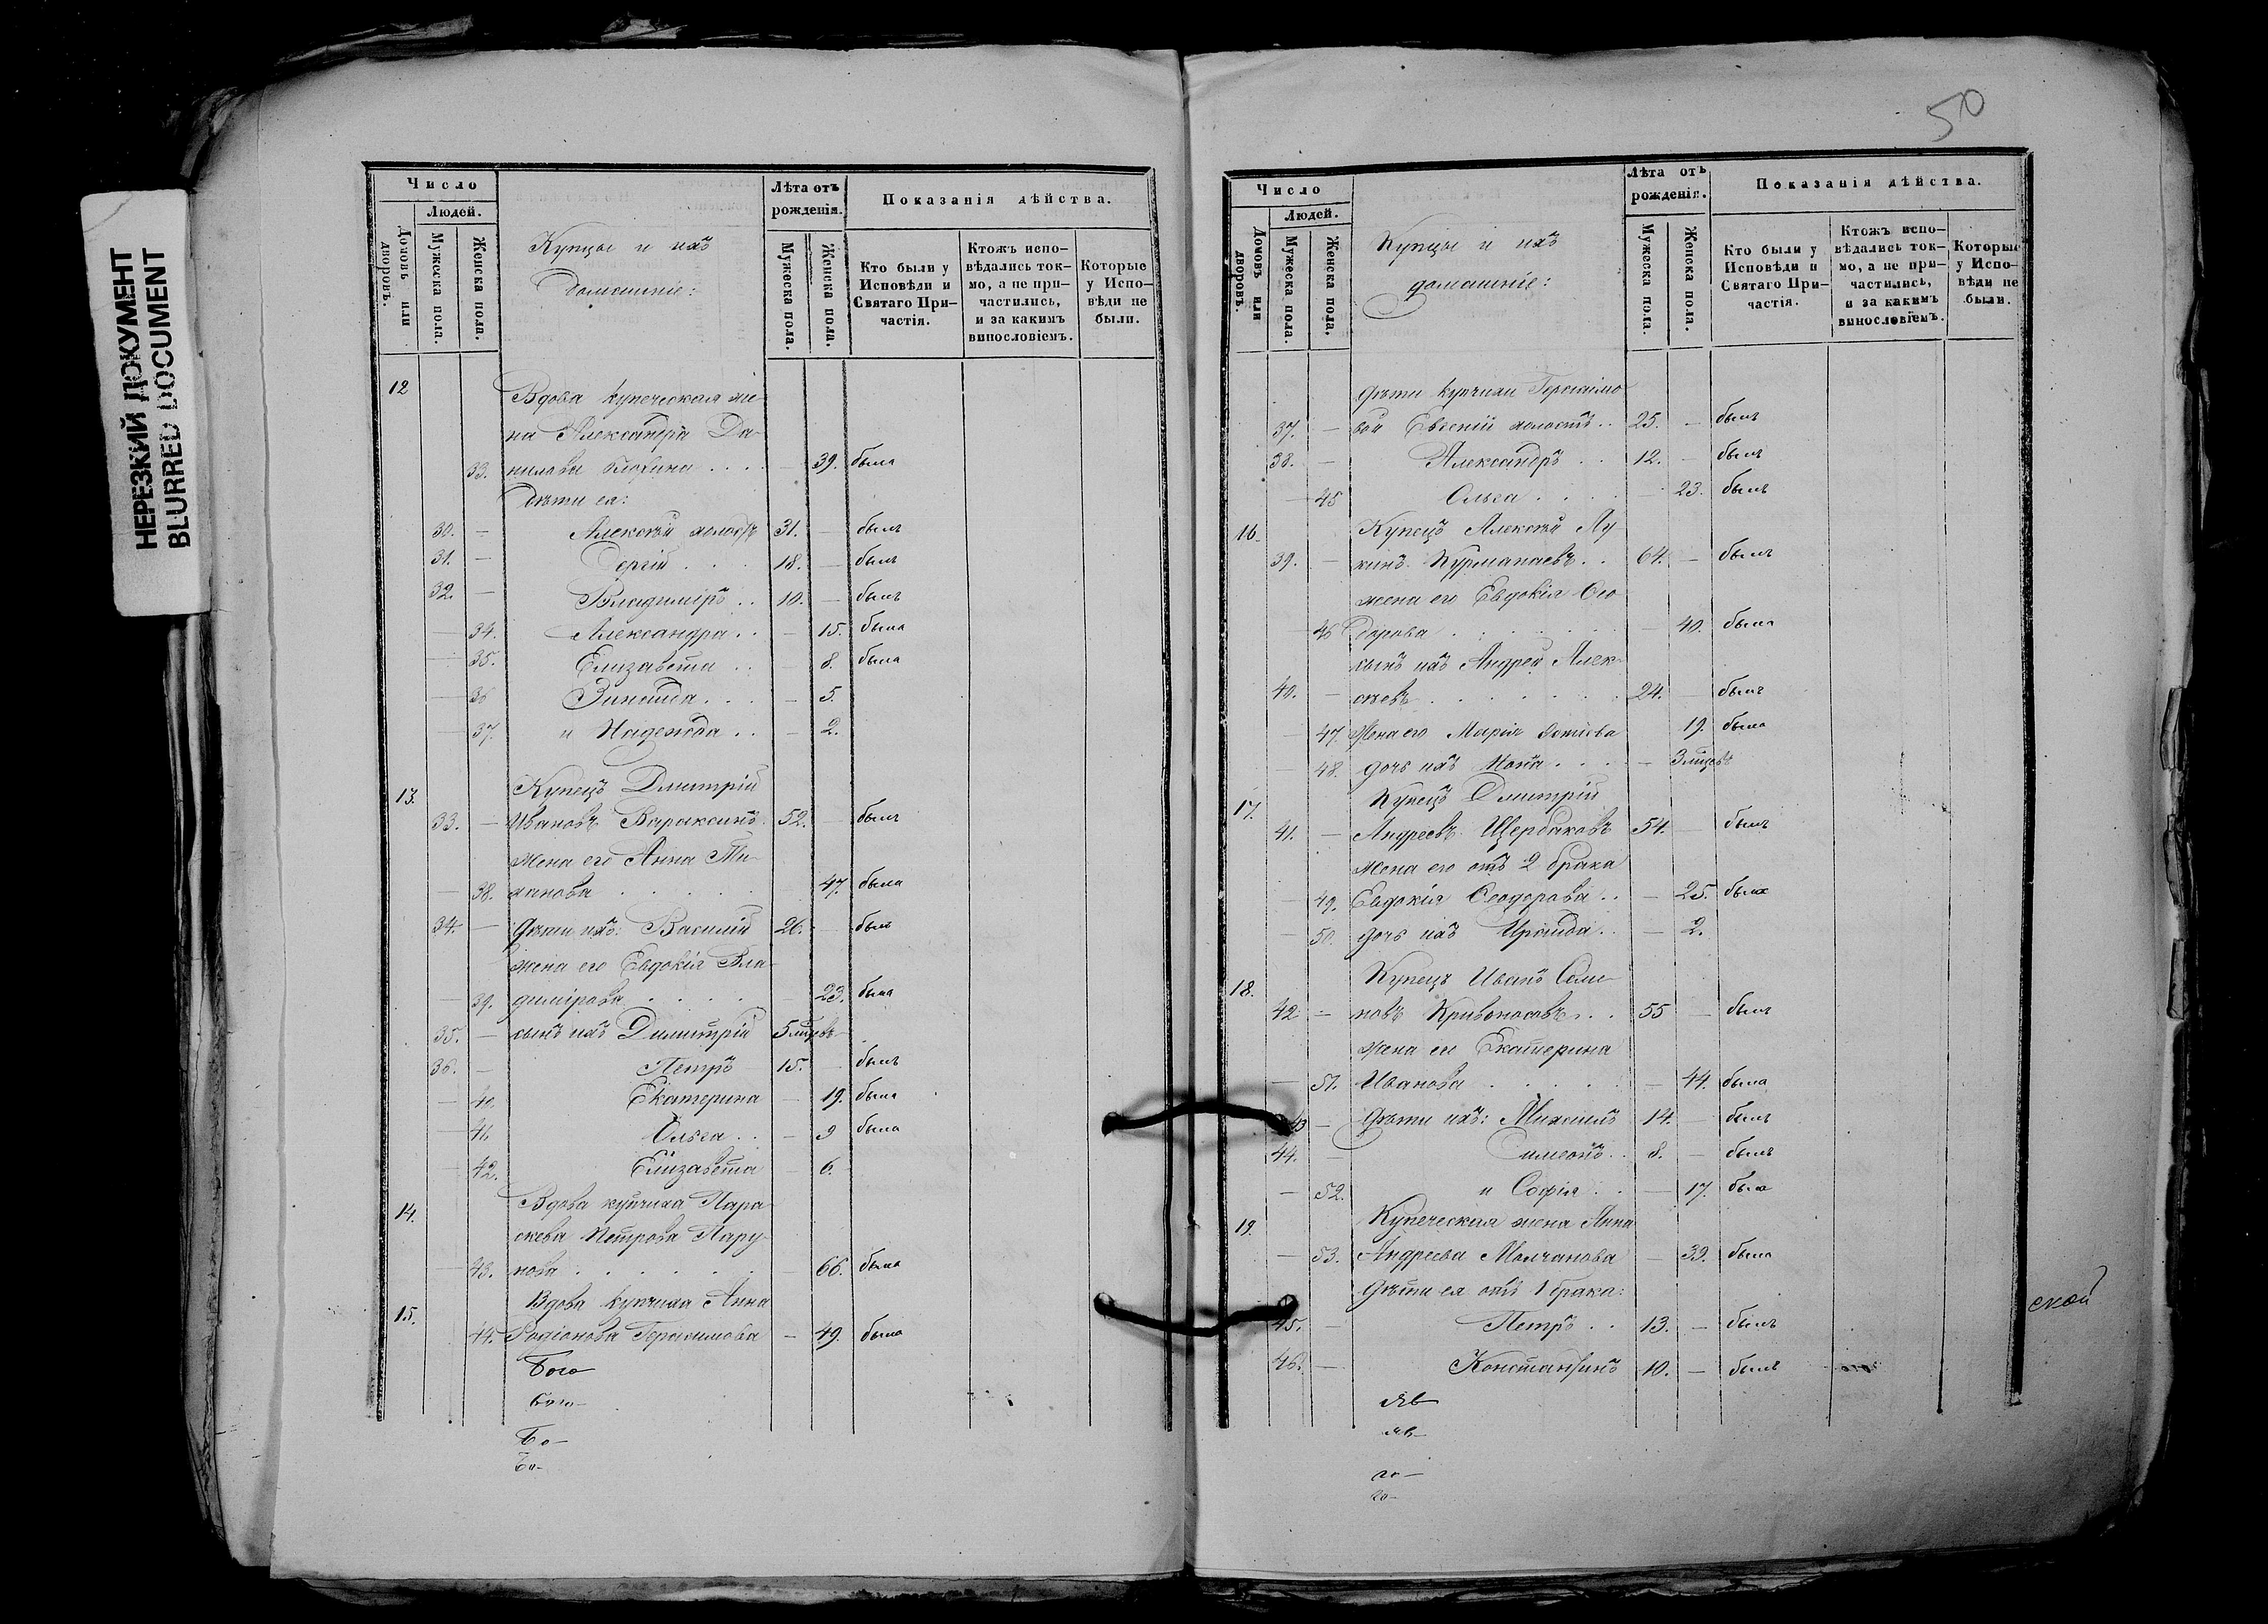 НЕРЕЗКИЙ ДОКУМЕНТ
BLURRED DOCUMENT
Число
Людей.
Домовъ или дворовъ.
Мужеска пола.
Женска пола.
Купцы и ихъ
домашніе:
Лѣта отъ рожденія.
Мужеска пола.
Женска пола.
Показанія дѣйства.
Кто были у Исповѣди и Святаго Причастія.
Ктожъ исповѣдались токмо, а не причастились, и за какимъ винословіемъ.
Которые у Исповѣди не были.
12 Вдова купеческая же-
на Александра Да-
33. нилова . . . — 39. была
Дѣти ея:
30. — Алексѣй холостъ 31. — былъ
31. — Сергій . . . 18. — былъ
32. — Владиміръ . . 10. — былъ
— 34. Александра . . — 15. была
— 35. Елизавета . . — 8. была
— 36 Зинаида . . . — 5.
— 37. и Надежда . . — 2.
13. Купецъ Димитрій
33. — Ивановъ Вараксинъ 52. — былъ
жена его Анна Ми-
— 38. хаилова . . . . . — 47. была
34. — дѣти ихъ: Василій 26. — былъ
жена его Евдокія Вла-
— 39. димірова . . . . — 23. была
35. — сынъ ихъ Димитрій 5 мѣсцвъ
36. — Петръ 15. — былъ
— 40. Екатерина — 19. была
— 41. Ольга . . — 9 была
— 42. Елизавета — 6.
14. Вдова купчиха Пара-
скева Петрова Пару-
— 43. нова . . . . . . — 66. была
15. Вдова купчиха Анна
44. Родіонова Герасимова — 49. была
Бого
Бого-
Бо-
Бо-
50
Число
Людей.
Домовъ или дворовъ.
Мужеска пола.
Женска пола.
Купцы и ихъ
домашніе:
Лѣта отъ рожденія.
Мужеска пола.
Женска пола.
Показанія дѣйства.
Кто были у Исповѣди и Святаго Причастія.
Ктожъ исповѣдались токмо, а не причастились, и за какимъ винословіемъ.
Которые у Исповѣди не были.
дѣти купчихи Герасимо-
37. — вой Евгеній холостъ . . 25. — былъ
38. — Александръ . . 12. — былъ
— 45 Ольга . . . . — 23. былъ
16. Купецъ Алексѣй Лу-
39. — кинъ Курмanaевъ . . 64. — былъ
жена его Евдокія Ѳео-
— 46 дорова . . . . . . — 40. была
сынъ ихъ Андрей Алек-
40. — сѣевъ . . . . . . . 24. — былъ
— 47. Жена его Марія 19. была
— 48. дочь ихъ . . . — 3 мѣсцвъ
17. Купецъ Димитрій
41. — Андреевъ Щербаковъ 54. — былъ
жена его отъ 2 брака
— 49. Евдокія Ѳеодорова . . — 25. была
— 50. дочь ихъ Ираида . . — 2.
18. Купецъ Иванъ Семе-
42 — новъ Кривоносовъ . . 55 — былъ
жена его Екатерина
— 51. Иванова . . . . . — 44. была
43 — дѣти ихъ: Михаилъ 14. — былъ
44. — Симеонъ . . 8. — былъ
— 52. и Софія . . — 17. была
19. Купеческая жена Анна
— 53. Андреева Молчанова — 39. была
дѣти ея отъ 1 брака:
45. — Петръ . . 13. — былъ
46. — Константинъ 10. — былъ
яв-
яв-
го-
го-
ской